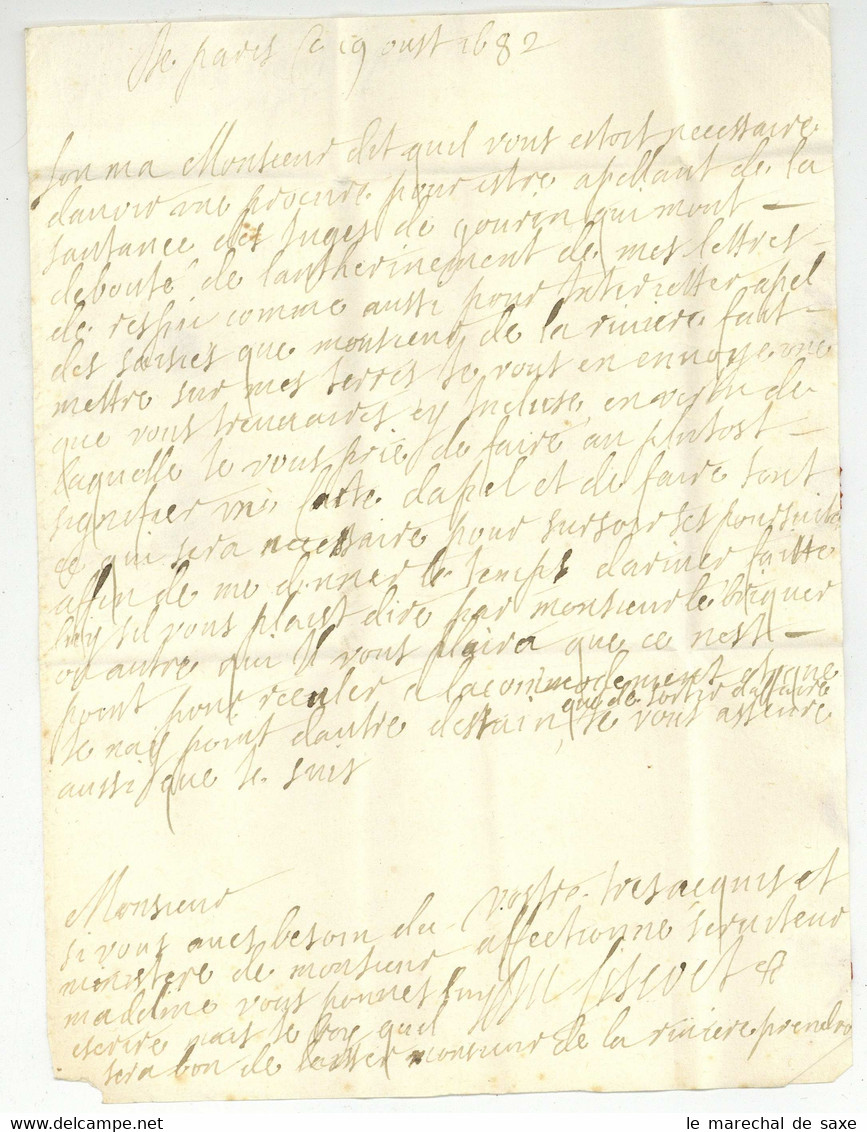 De paris ce 19 oust 1682
Lon ma Monsieur dit quil vous estoit necessaire
davoir une procure pour estre apellant de la
santance des Juges de gourin qui mont
deboute de lantherinement de mes lettres
de respir comme aussi pour Interietter apel
des saisies que monsieur de la riviere fait
mettre sur mes terres Je vous en envoye une
que vous trouvaires cy Incluse en vertu de
laquelle Je vous prie de faire au plutost
signifier un lacte dapel et de faire tout
ce qui sera necessaire pour sursoir ses poursuite
affin de me donner le temps dariver faitte
luy sil vous plaist dire par monsieur le briquer
ou autre qui Il vous plaira que ce nest
point pour reculer a lacommodement et que
Je nay point dautre dessain que de sortir daffaire Je vous asseure
aussi que Je suis
Monsieur
vostre tres acquis et
affectionne serviteur
si vous aves besoin du
ministere de monsieur
madeline vous pouves luy
escrire mais Je croy quil
sera bon de laisser monsieur de la riviere prendre
le marechal de saxe